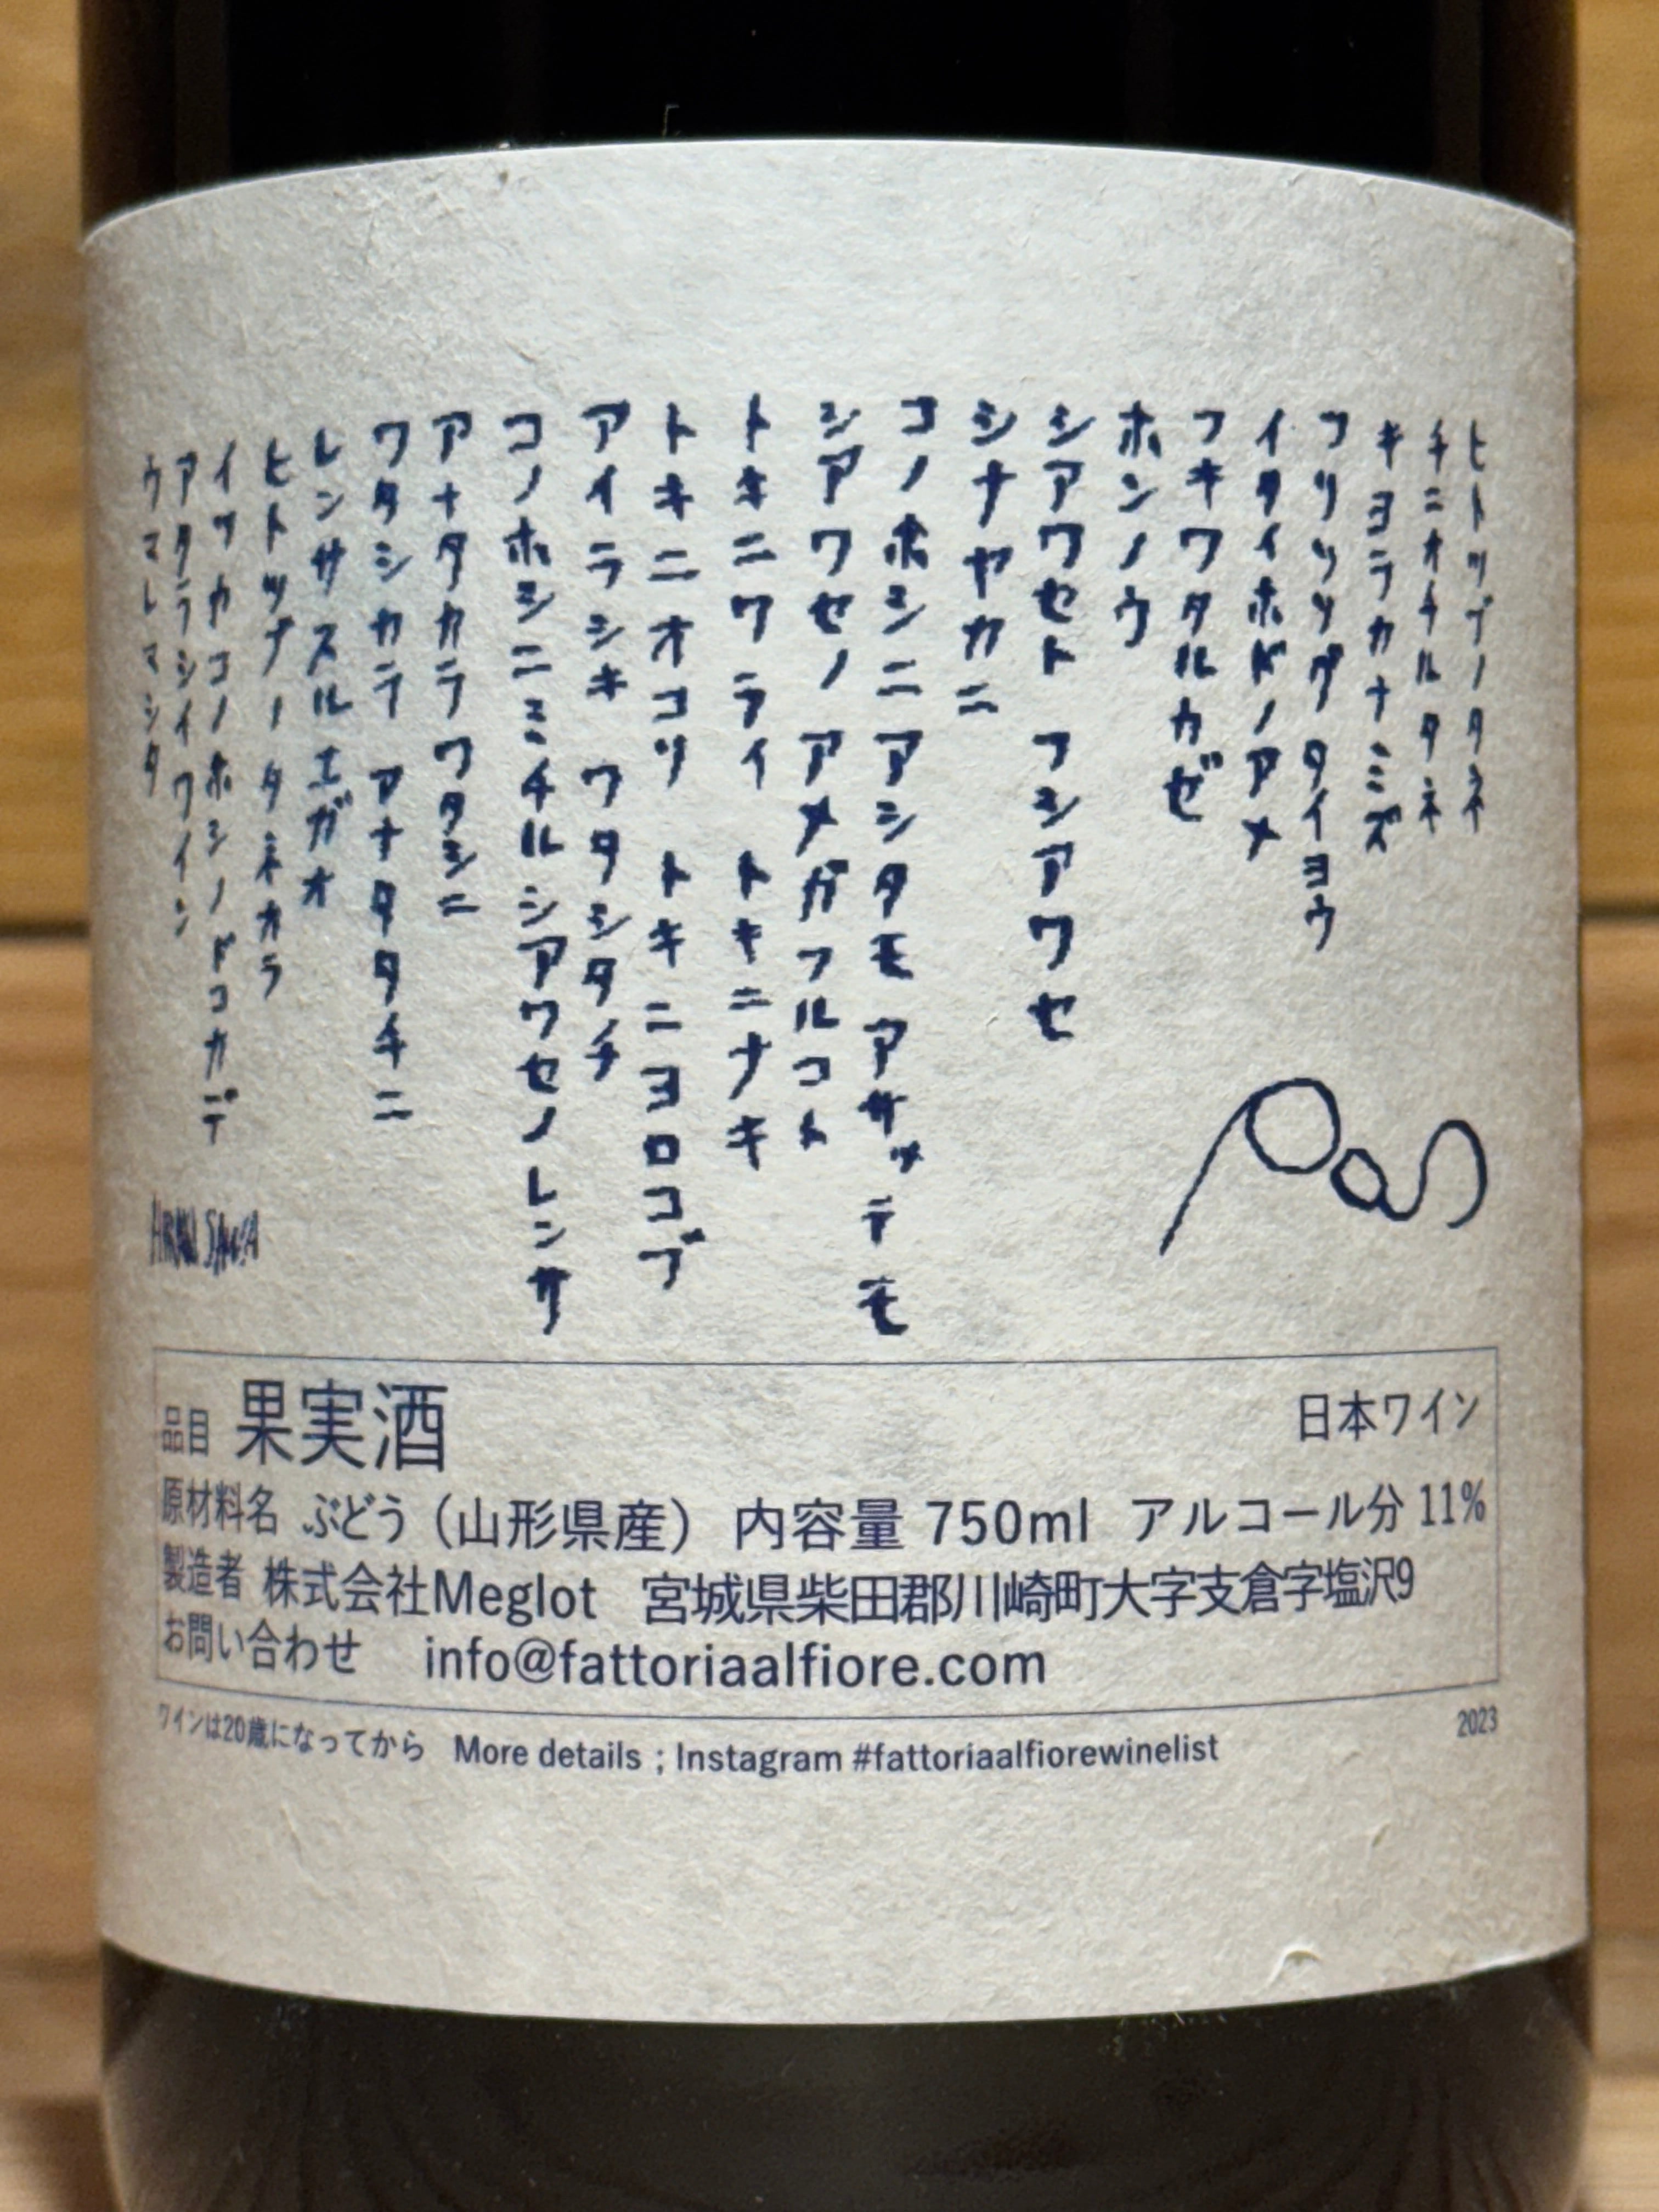 ヒトツブノタネ
チニオチルタネ
キヨラカナミズ
フリソソグタイヨウ
イタイホドノアメ
フキワタルカゼ
ホンノウ
シアワセト フシアワセ
シナヤカニ
コノホシニアシタモ アサッテモ
シアワセノ アメガフルコト
トキニワライ トキニナキ
トキニオコリ トキニヨロコブ
アイラシキ ワタシタチ
コノホシニミチルシアワセノレンサ
アナタカラワタシニ
ワタシカラ アナタタチニ
レンサスルエガオ
ヒトツブノタネカラ
イツカコノホシノドコカデ
アタラシイワイン
ウマレマシタ
品目 果実酒 日本ワイン
原材料名 ぶどう（山形県産） 内容量 750ml アルコール分 11%
製造者 株式会社Meglot 宮城県柴田郡川崎町大字支倉字塩沢9
お問い合わせ info@fattoriaalfiore.com
ワインは20歳になってから More details ; Instagram #fattoriaalfiorewinelist 2023